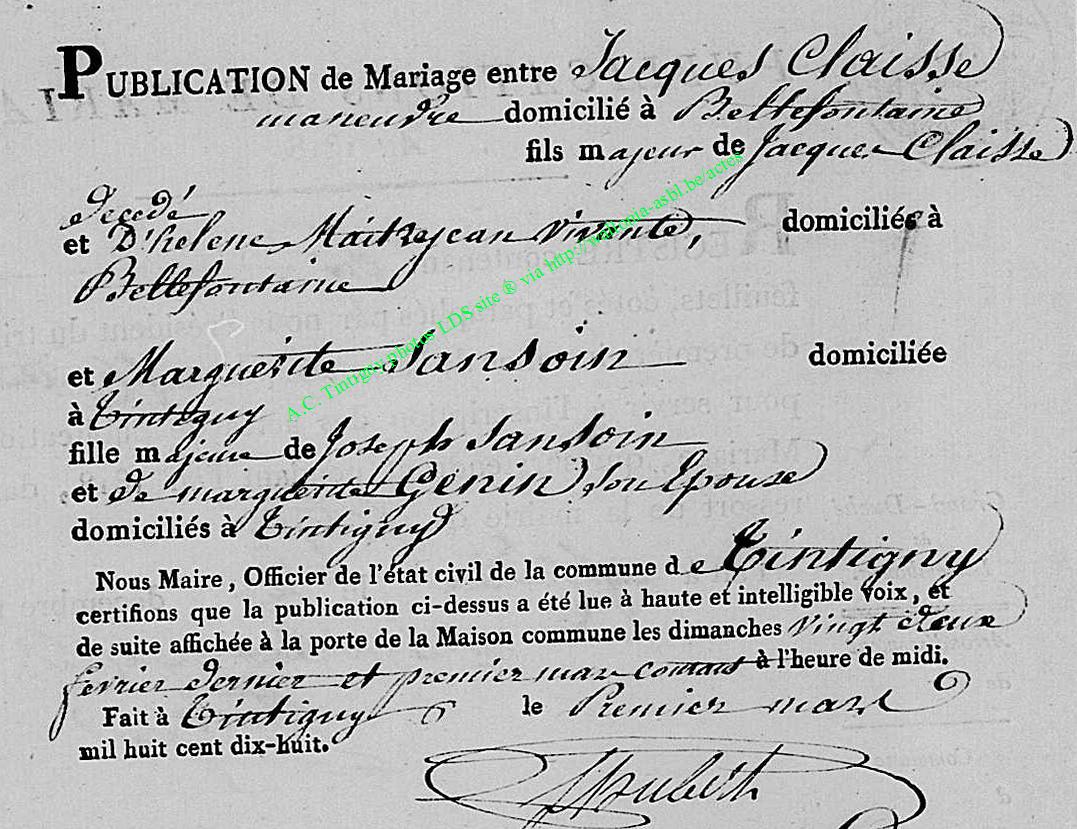 PUBLICATION de Mariage entre Jacques Claisse
maneuvre domicilié à Bellefontaine
fils majeur de Jacque Claisse
decedé
et D'helene Maitrejean vivante, domiciliés à
Bellefontaine
et Marguerite Sansoin domiciliée
à Tintigny
fille majeure de Joseph Sansoin
et de marguerite Genin son Epouse
domiciliés à Tintigny
Nous Maire, Officier de l'état civil de la commune de Tintigny
certifions que la publication ci-dessus a été lue à haute et intelligible voix, et
de suite affichée à la porte de la Maison commune les dimanches vingt deux
fevrier dernier et premier mars courant à l'heure de midi.
Fait à Tintigny le Premier mars
mil huit cent dix-huit.
A.C. Tintigny photos LDS site ® via http://wallonia-asbl.be/actes